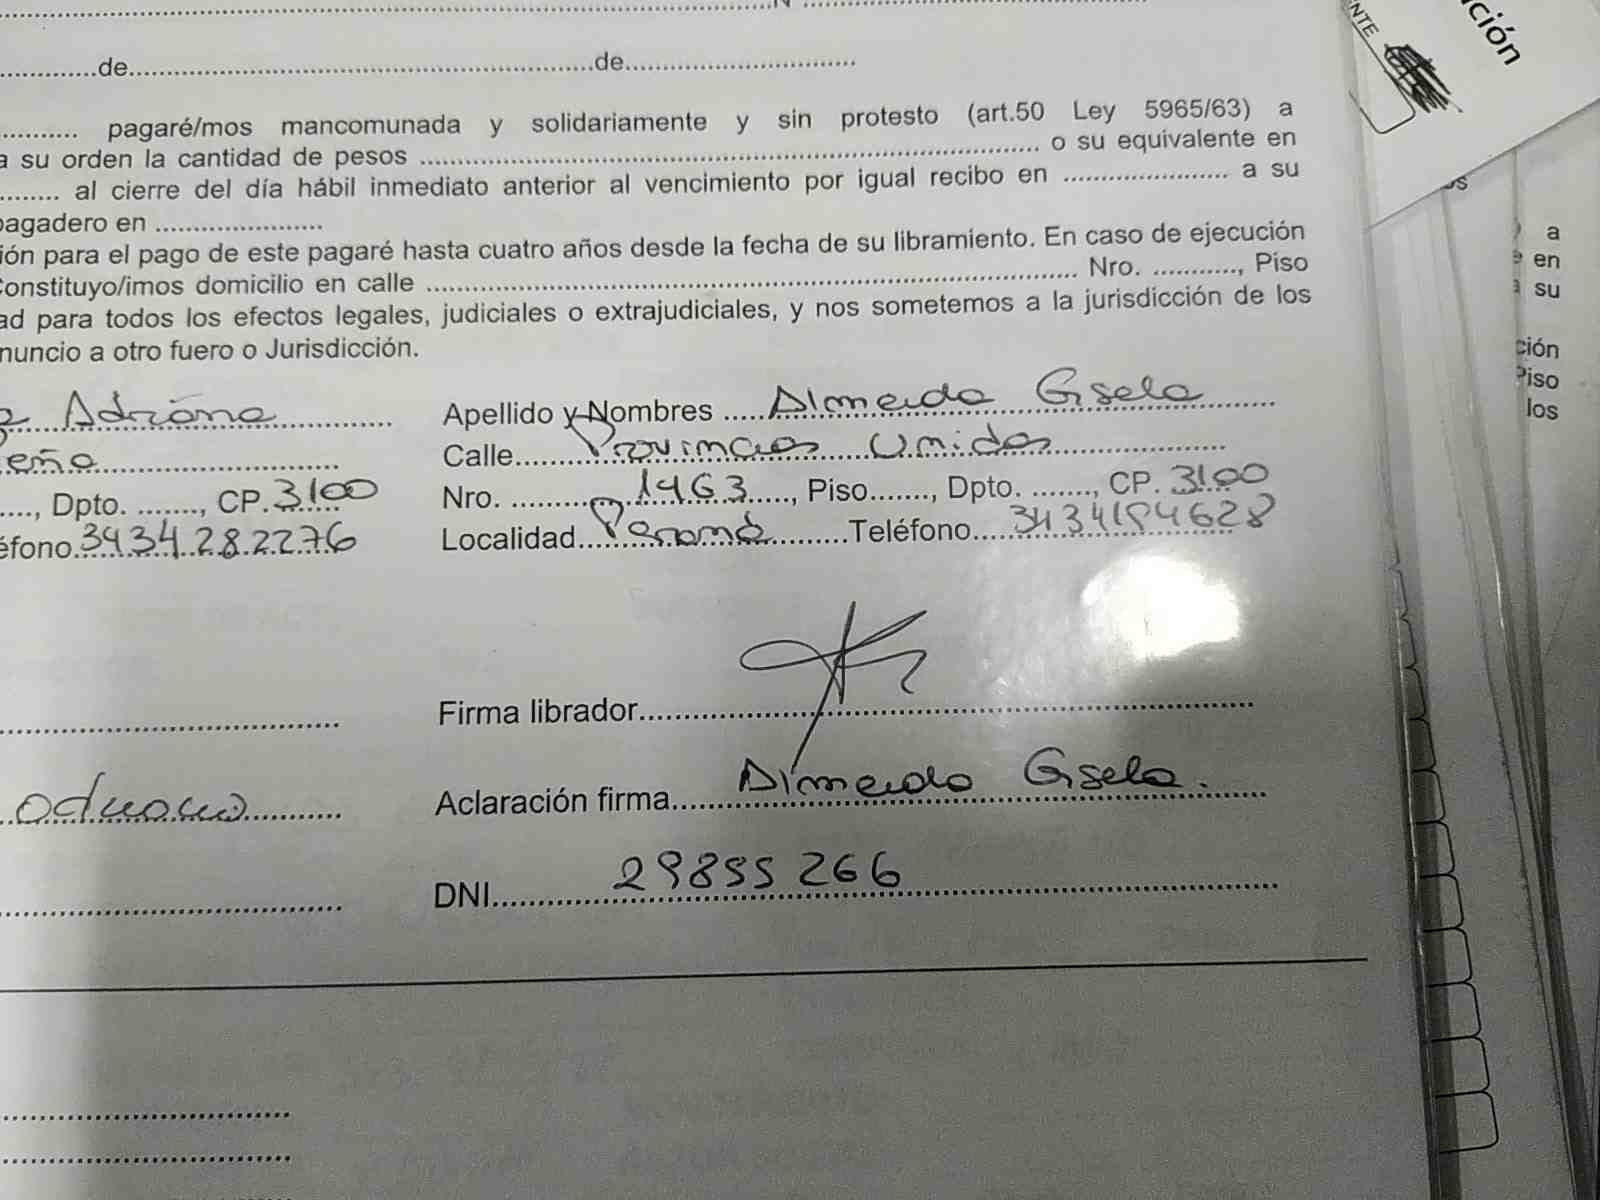 de de
pagaré/mos mancomunada y solidariamente y sin protesto (art.50 Ley 5965/63) a
a su orden la cantidad de pesos o su equivalente en
al cierre del día hábil inmediato anterior al vencimiento por igual recibo en a su
pagadero en
ión para el pago de este pagaré hasta cuatro años desde la fecha de su libramiento. En caso de ejecución
Constituyo/imos domicilio en calle Nro. , Piso
ad para todos los efectos legales, judiciales o extrajudiciales, y nos sometemos a la jurisdicción de los
nuncio a otro fuero o Jurisdicción.
Adriana
eña
, Dpto. , CP. 3100
éfono 3434 282276
Apellido y Nombres Almeida Gisela
Calle Provincias Unidas
Nro. 1463, Piso , Dpto. , CP. 3100
Localidad Paraná Teléfono 3434194628
Firma librador
Aclaración firma Almeida Gisela.
DNI 29855 266
ción
ENTE
os
a
en
su
ción
Piso
los